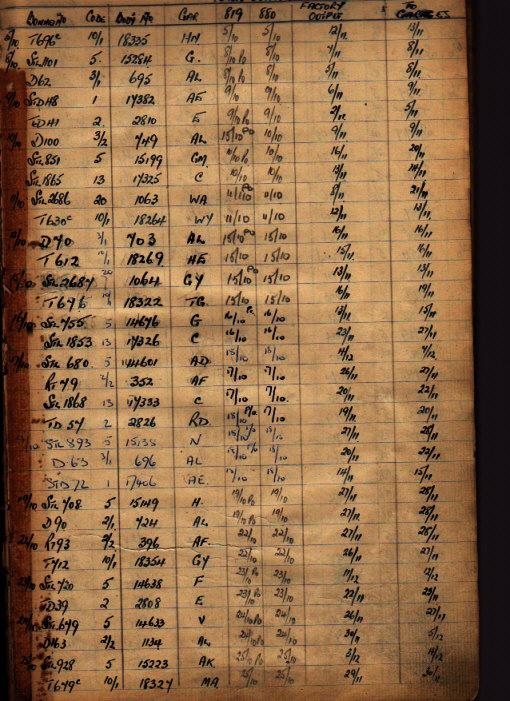 BONNET NO CODE BODY NO GAR 819 880 FACTORY OUTPUT TO
T696c 10/1 18335 HN 5/10 5/10 12/11 13/11
STL1101 5 15284 G. 8/10 8/10 7/11 8/11
D62 3/1 695 AL 8/10 8/10 5/11 8/11
STD148 1 17382 AE 9/10 9/10 6/11 9/11
TD41 2 2810 E 9/10 9/10 2/11 5/11
D100 3/2 749 AL 15/10 10/10 9/11 9/11
STL851 5 15199 GM 10/10 10/10 16/11 20/11
STL1865 13 17325 C 10/10 10/10 13/11
STL2686 20 1063 WA 11/10 11/10 8/11 21/11
T630c 10/1 18264 WY 11/10 11/10 12/11 13/11
D70 3/1 703 AL 15/10 15/10 16/11 16/11
T612 18269 HE 15/10 15/10 15/11 16/11
STL2687 20 1064 GY 15/10 15/10 13/11 13/11
T646 18322 TG 15/10 15/10 16/11 19/11
STL755 5 14676 G 16/10 16/10 13/11 15/11
STL1853 13 17326 C 16/10 16/10 23/11 27/11
STL680 5 14601 AD 4/12 7/12
RT79 2/2 352 AF 7/10 7/10 26/11 27/11
STL1868 13 17333 C 7/10 7/10 20/11 22/11
TD54 2 2826 RD 7/10 19/11 20/11
STL893 5 15138 N 27/11 28/11
D63 3/1 696 AL 20/11 22/11
STD72 1 17406 AE 14/11 15/11
STL708 5 15149 H 19/10 19/10 27/11 28/11
D90 2/1 724 AL 19/10 19/10 27/11 28/11
RT93 2/2 396 AF 22/10 22/10 27/11 28/11
T712 10/1 18354 GY 22/10 22/10 26/11 27/11
STL720 5 14638 F 23/10 23/10 11/12 12/12
TD39 2 2808 E 23/10 23/10 22/11 23/11
STL679 5 14633 V 24/10 24/10 26/11 27/11
D163 2/2 1134 AL 24/10 24/10 30/11 5/12
STL928 5 15223 AK 25/10 25/10 3/12 4/12
T649c 10/1 18327 MA 25/10 25/10 29/11 30/11